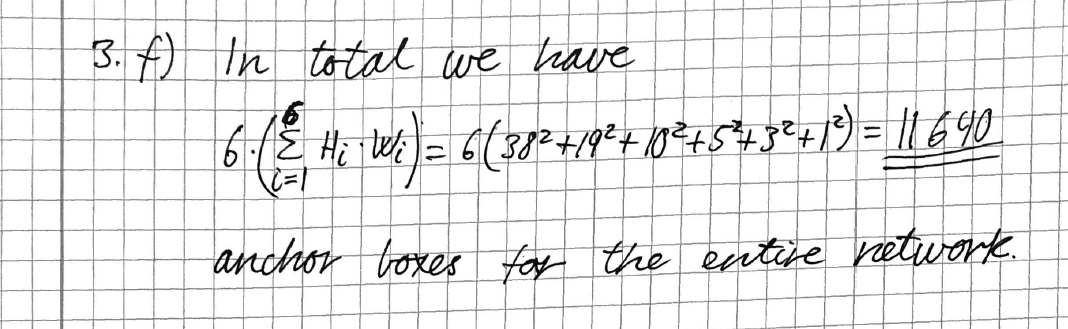 3. f) In total we have
6·(∑_{i=1}^{6} H_i · W_i) = 6(38² + 19² + 10² + 5² + 3² + 1²) = 11 640
anchor boxes for the entire network.